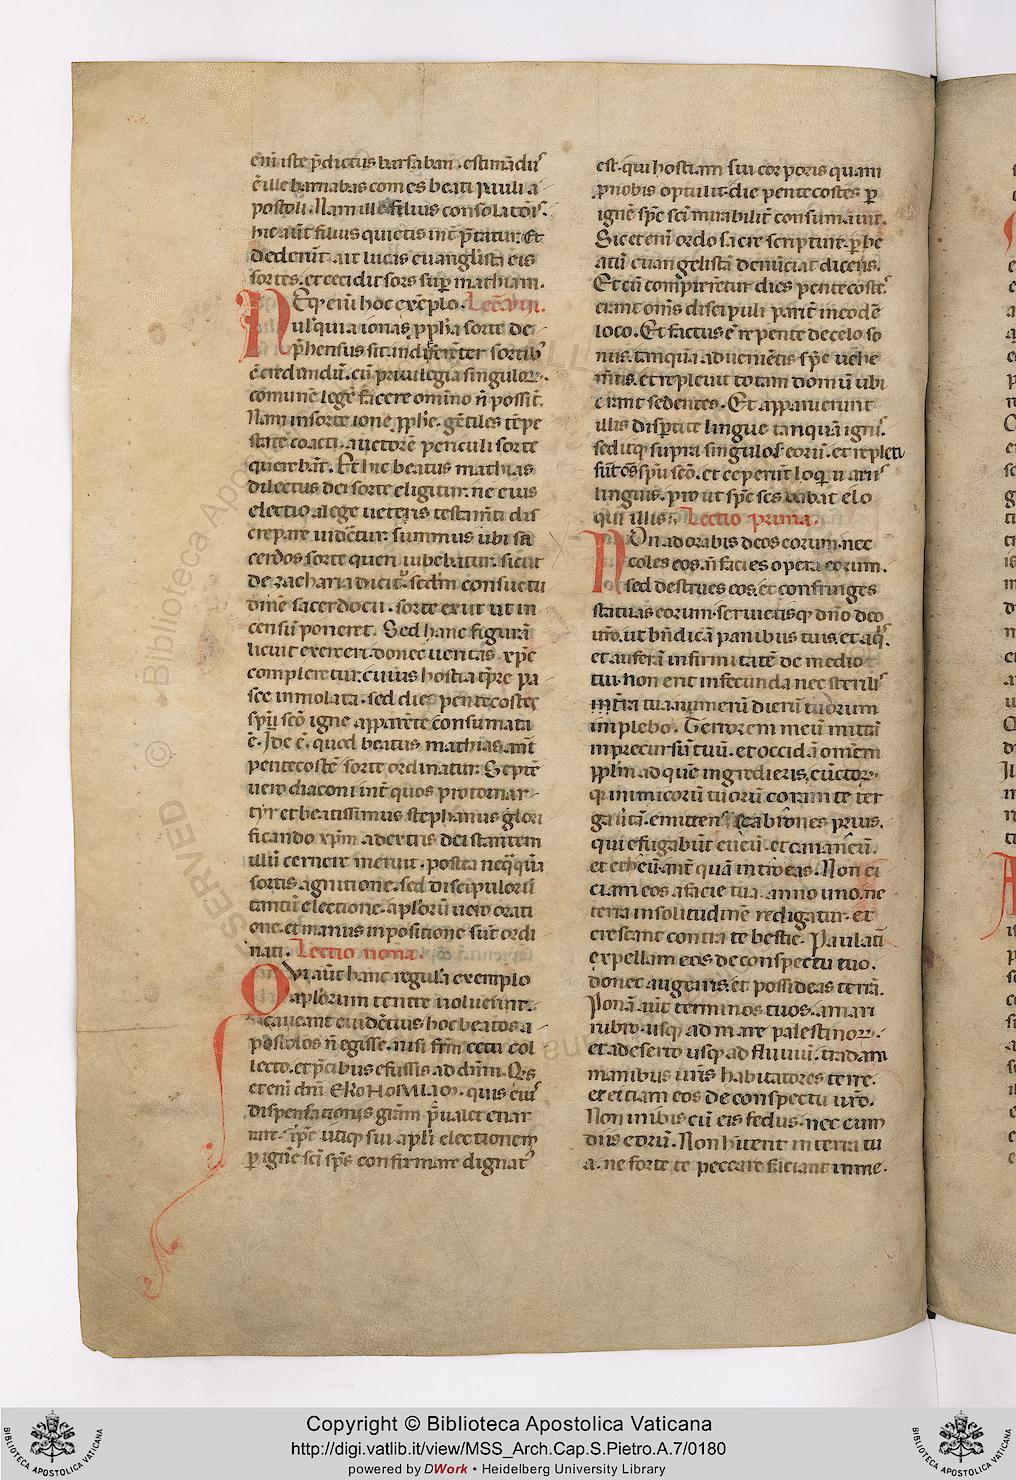 eni᷑ iste p̃dictus barsaban . estimãdus
ẽ ille barnabas comes beati pauli a
postoli . Nam ille filius consolatõis .
hic aũt filius quietis int̃ p̃tatur . Et
dederũt ait lucas euanglista eis
sortes . et cecidit sors sup̱ mathiam .
Neq; enĩ hoc exẽplo . Lec̃ . viii .
ul quia ionas ppħa sorte de
p̃hensus sit . indifferẽter sortib;
ẽ credendũ . cũ priuilegia singulor .
comunẽ legẽ facere omino ñ possit .
Nam in sorte ione ppħe . gẽtiles tẽpe
state coacti . auctorẽ periculi sorte
querebãt . Et hic beatus mathias
dilectus dei sorte eligitur . ne eius
electio a lege ueteris testamẽti dis
crepare uidẽtur . summus ubi sa
cerdos sorte queri iubebatur . sicut
de zacharia dicit̃ . scđm consuetu
dinẽ sacerdocii . sorte exiit ut in
censũ poneret . Sed hanc figurã
licuit exerceri . donec ueritas xp̃c
compleretur . cuius hostia tp̃re pa
sce inmolata . sed die pentecostes
sp̃u sc̃o igne apparẽte consumata
ẽ . Ide ẽ . quod beatus mathias . añt
pentecostẽ sorte ordinatur . Septẽ
uero diaconi int̃ quos protomar
tyr et beatissimus stephanus glori
ficando xp̃m . a dextris dei stantem
illũ cernere meruit . postea neq̃q̃ua
sortis agnitione . sed discipulorũ
tantũ electione . ap̃lorũ uero orati
one . et manus inpositione sũt ordi
nati . Lectio nona .
Qui aũt hanc regulã exemplo
ap̃lorum tenere uoluerint .
caueant euidẽtius hoc beatos a
postolos ñ egisse . nisi fr̃m cetu col
lecto . et p̃cibus effusis ad dñm . Q̃s
et eni᷑ dñi EKONOMIAM . quis eius
dispensationis gr̃am p̃ualet enar
rare . xp̃c utiq; sui ap̃li electionem
p̱ ignẽ sc̃i sp̃s confirmare dignat̃
est . qui hostiam sui corporis quam
p̱ nobis optulit . die pentecostes p̱
ignẽ sp̃c sc̃i mirabilit̃ consumauit .
Sic et enĩ ordo sacre scripture . p̱ be
atũ euangelistã denũciat dicens .
Et cũ complerẽtur dies pentecostes
erant om̃s discipuli parit̃ in eodẽ
loco . Et factus ẽ repente de celo so
nus . tanquã aduenientis sp̃c uehe
mẽtis . et repleuit totam domũ ubi
erant sedentes . Et apparuerunt
illis disp̱tite lingue tanquã ignis .
seditq; supra singulos eorũ . et repleti
sũt om̃s sp̃u sc̃o . et ceperũt loqui uariis
linguis . prout sp̃c sc̃s dabat elo
qui illis ; Lectio prima .
Non adorabis deos eorum . nec
coles eos . ñ facies opera eorum .
sed destrues eos . et confringes
statuas eorum . seruietisq; dño deo
uro . ut bñdicã panibus tuis . et aq̃s .
et auferã infirmitatẽ de medio
tui . non erit infecunda nec sterilis
in t̃ra tua . numerũ dierũ tuorum
implebo . Terrorem meũ mittã
in precursũ tuũ . et occidã omẽm
pp̃lm ad quẽ ingredieris . cũctor
q; inimicorũ tuorũ coram te ter
ga ũtã . emittens scabrones prius .
qui effugabũt eueũ . et cananeũ .
et etheũ . añt quã introeas . Non ei
ciam eos a facie tua . anno uno . ne
terra in solitudinẽ redigatur . et
crescant contra te bestie . Paulatĩ
expellam eos de conspectu tuo .
donec augearis . et possideas terrã .
Ponã aũt terminos tuos . a mari
rubro . usq; ad mare palestinor .
et a deserto usq; ad fluuiũ . tradam
manibus uris habitatores terre .
et eiciam eos de conspectu uro .
Non inibis cũ eis fedus . nec cum
diis eorũ . Non hĩtent in terra tu
a . ne forte te peccare faciant in me .
Copyright © Biblioteca Apostolica Vaticana
http://digi.vatlib.it/view/MSS_Arch.Cap.S.Pietro.A.7/0180
powered by DWork • Heidelberg University Library
BIBLIOTECA APOSTOLICA VATICANA
BIBLIOTECA APOSTOLICA VATICANA